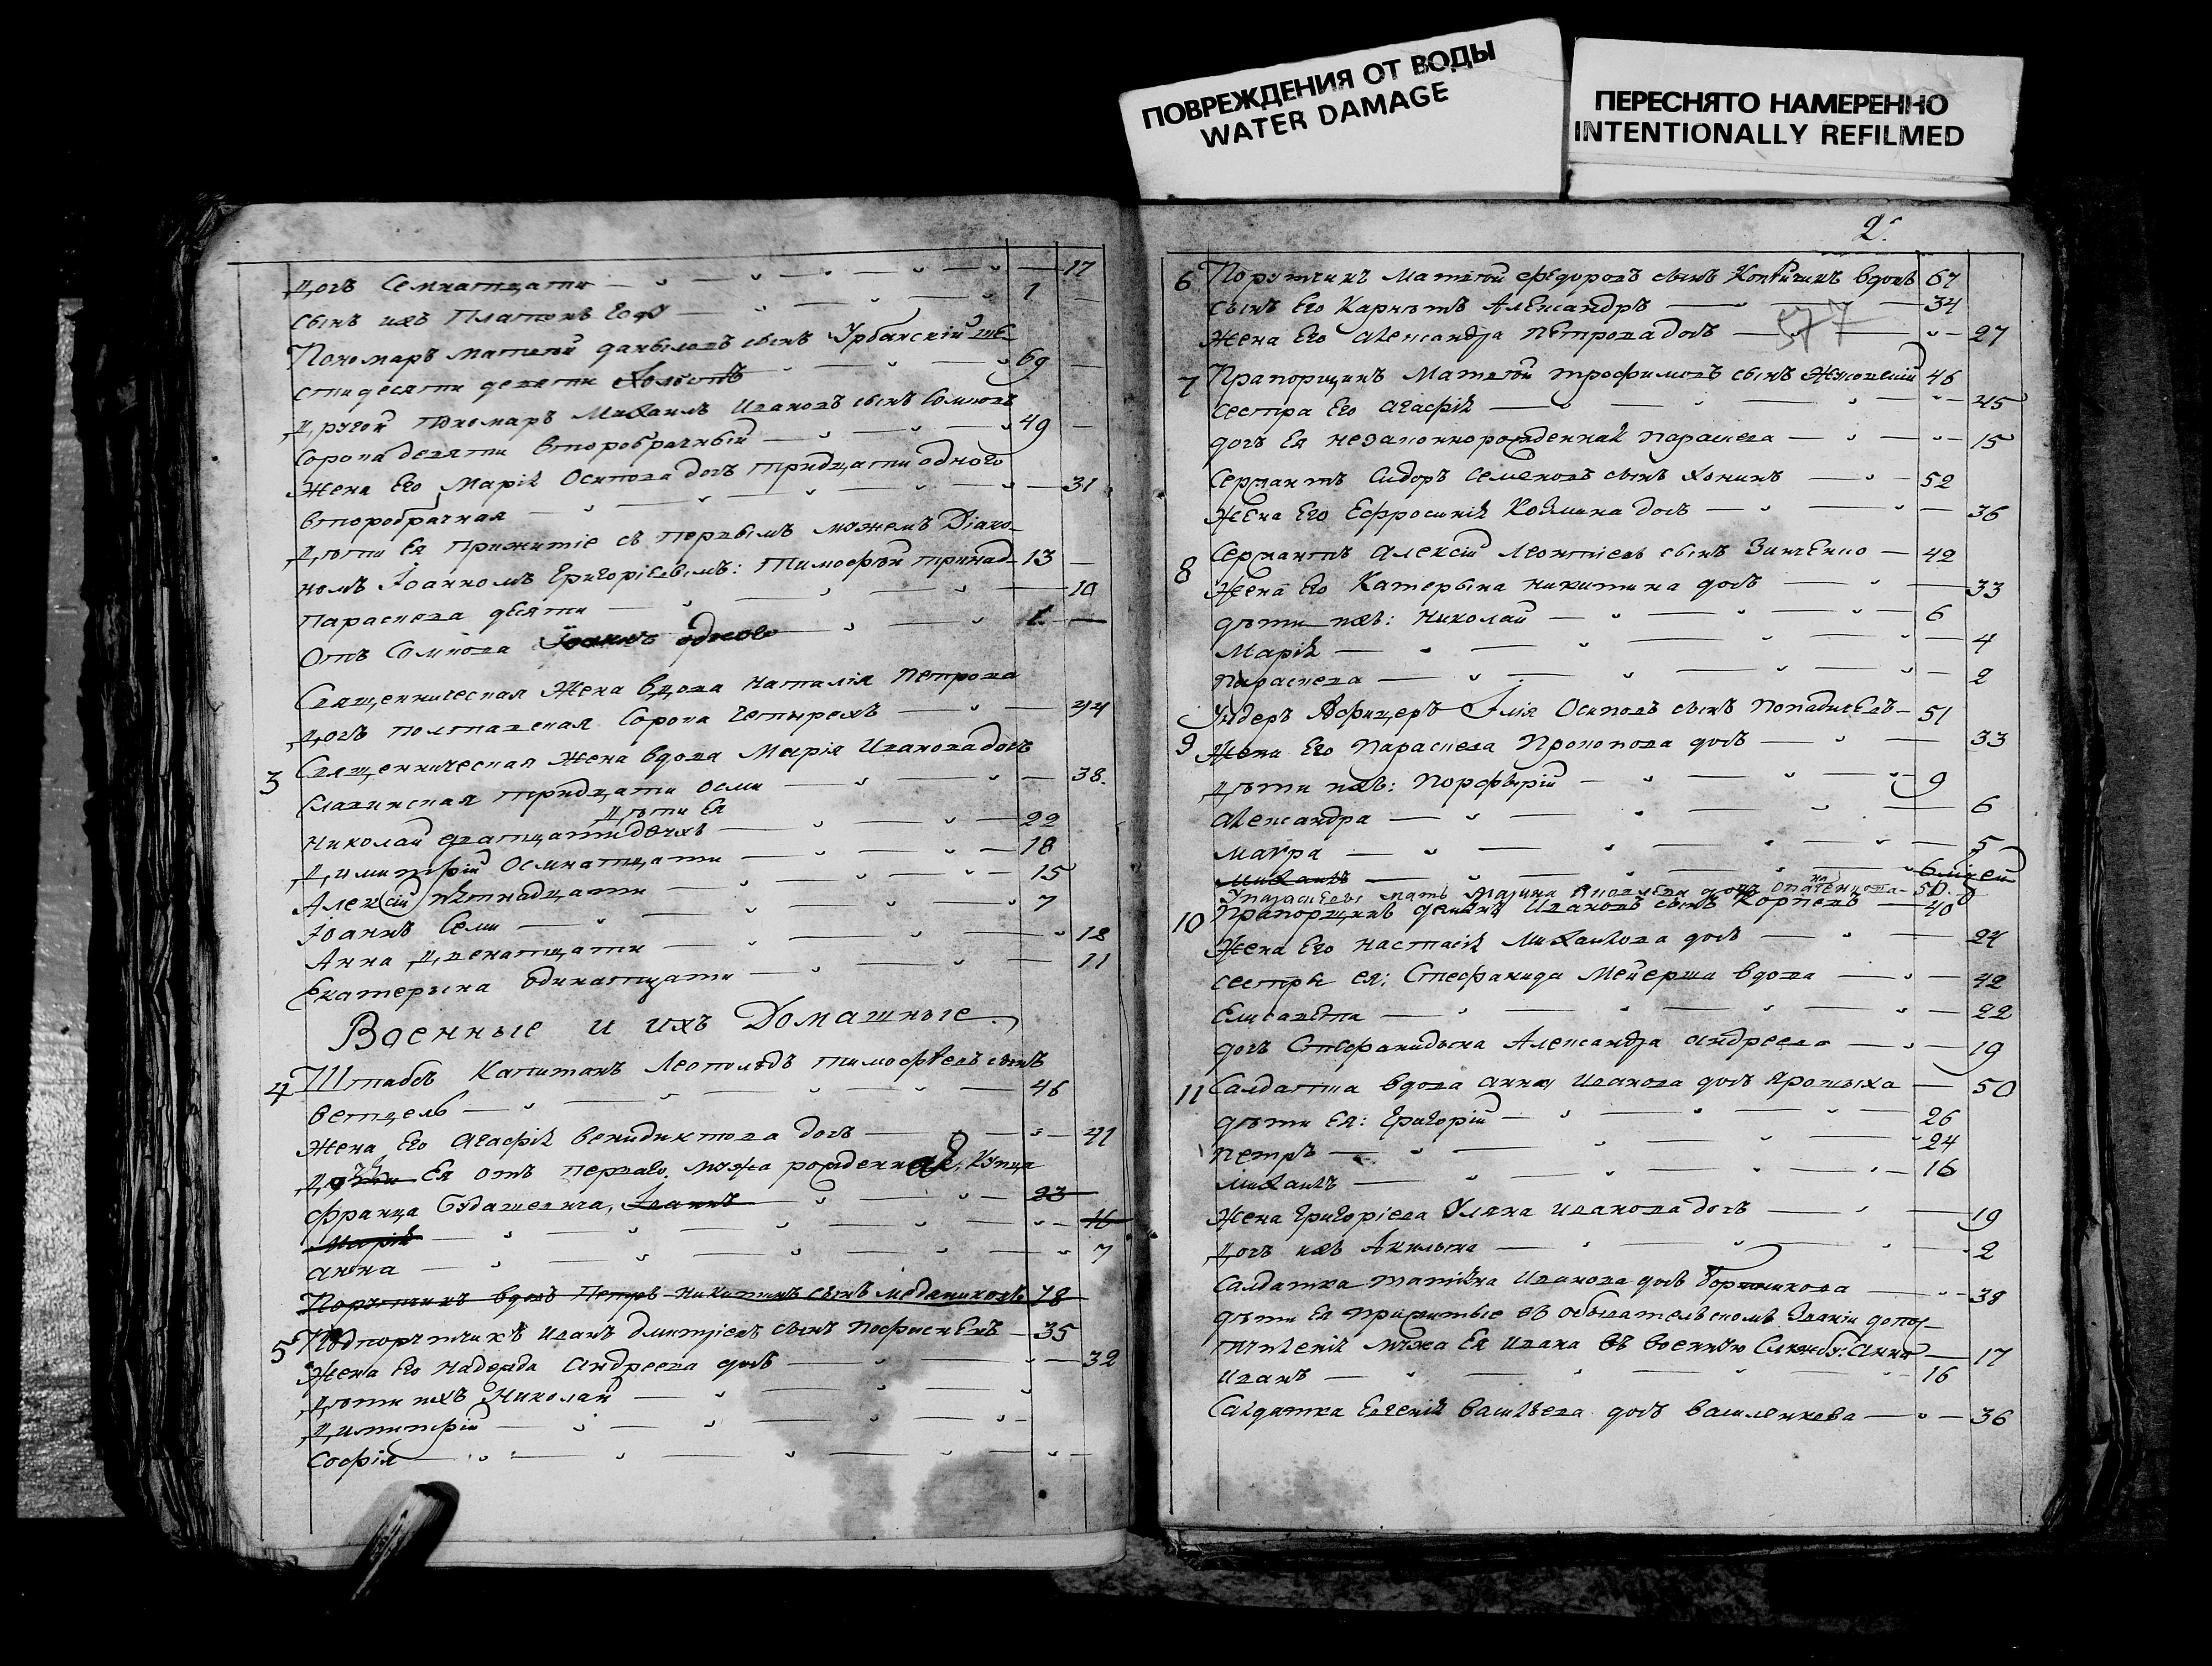 ПОВРЕЖДЕНИЯ ОТ ВОДЫ
WATER DAMAGE
ПЕРЕСНЯТО НАМЕРЕННО
INTENTIONALLY REFILMED
дочъ Семнатцати 17
сынъ ихъ Платонъ 1
Пономаръ Матѳей Даныловъ сынъ Урбанскій ше-
стидесяти девяти 69
Другой Пономаръ Михаилъ Ивановъ сынъ
Сорока девяти второбрачный 49
Жена Его Марія Осипова дочъ тридцати одного
второбрачная 31
Дѣти Ея Прижитіе съ первымъ мужемъ Діако-
номъ Іоанномъ Григоріевымъ: Тимофѣй принад- 13
Параскева десяти 10
Отъ 1
Священническая Жена вдова Наталія Петрова
дочъ Полтавская Сорока Четырехъ 44
3 Священническая Жена вдова Марія Иванова дочъ
Славинская тридцати осми 38.
Дѣти Ея
Николай дватцати двохъ 22
Димитрій Осмнатцати 18
Алексій пятнадцати 15
Іоаннъ Семи 7
Анна Двенатцати 12
Екатерына Одинатцати 11
Военные и ихъ Домашные
4 Штабсъ Капитанъ Леополдъ Тимофѣевъ сынъ
Ветцель 46
Жена Его Агафія Венидиктова дочъ 41
Ея отъ перваго мужа рожденная, Купца
Франца Іоаннъ 23
Марія 16
Анна 7
Порутчикъ вдовъ Петръ Никитинъ сынъ 78
5 Подпорутчикъ Иванъ Дмитріевъ сынъ 35
Жена Его Надежда Андреева дочъ 32
Дѣти ихъ Николай
Димитрій
Софія
2.
577
6 Порутчикъ Матѳей Федоровъ сынъ вдовъ 67
Сынъ Его Карнетъ Александръ 34
Жена Его Александра Петрова дочъ 27
7 Прапорщикъ Матѳей Трофимовъ сынъ 46
Сестра Его Агафія 45
дочъ Ея незаконнорожденная Параскева 15
Сержантъ Сидоръ Семеновъ сынъ 52
Жена Его Ефросинія дочъ 36
8 Сержантъ Алексій Леонтіевъ сынъ Зинченко 42
Жена Его Катерына Никитина дочъ 33
дѣти ихъ: Николай 6
Марія 4
Параскева 2
9 Ундеръ Афицеръ Илія Осиповъ сынъ 51
Жена Его Параскева Прокопова дочъ 33
Дѣти ихъ: Порфырій 9
Александра 6
Мавра 5
Михаилъ
мать дочъ 50
10 Прапорщикъ Ивановъ сынъ 40
Жена Его Настасія Михаилова дочъ 24
сестры ея: Стефанида вдова 42
Елисавета 22
дочъ Стефанидына Александра Андреева 19
11 Салдатка вдова Анна Иванова дочъ 50
дѣти Ея: Григорій 26
Петръ 24
Михаилъ 16
Жена Григоріева Уляна Иванова дочъ 19
Дочъ ихъ Акилына 2
Салдатка Татіана Иванова дочъ 38
дѣти Ея Прижитые въ обывателскомъ Званіи допос-
тупленія мужа Ея Ивана въ военную Службу: Анна 17
Иванъ 16
Салдатка Евгенія Василева дочъ Василенкова 36